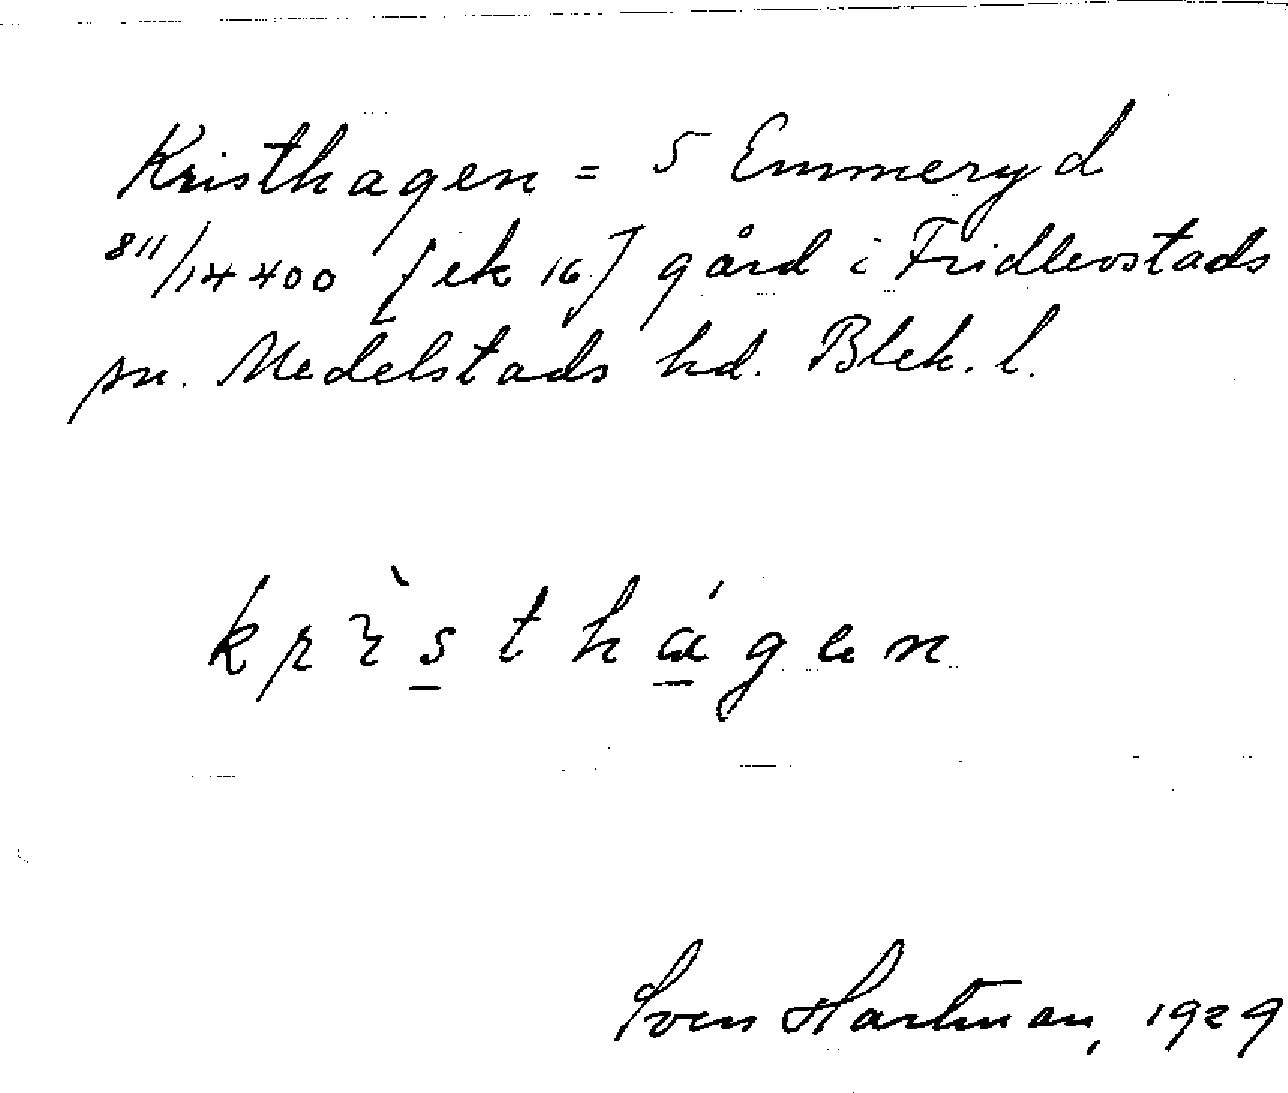 Kristhagen = 5 Emmeryd
811/14400 [ek 16] gård i Fridlevstads
sn. Medelstads hd. Blek. l.
Sven Hartman, 1929